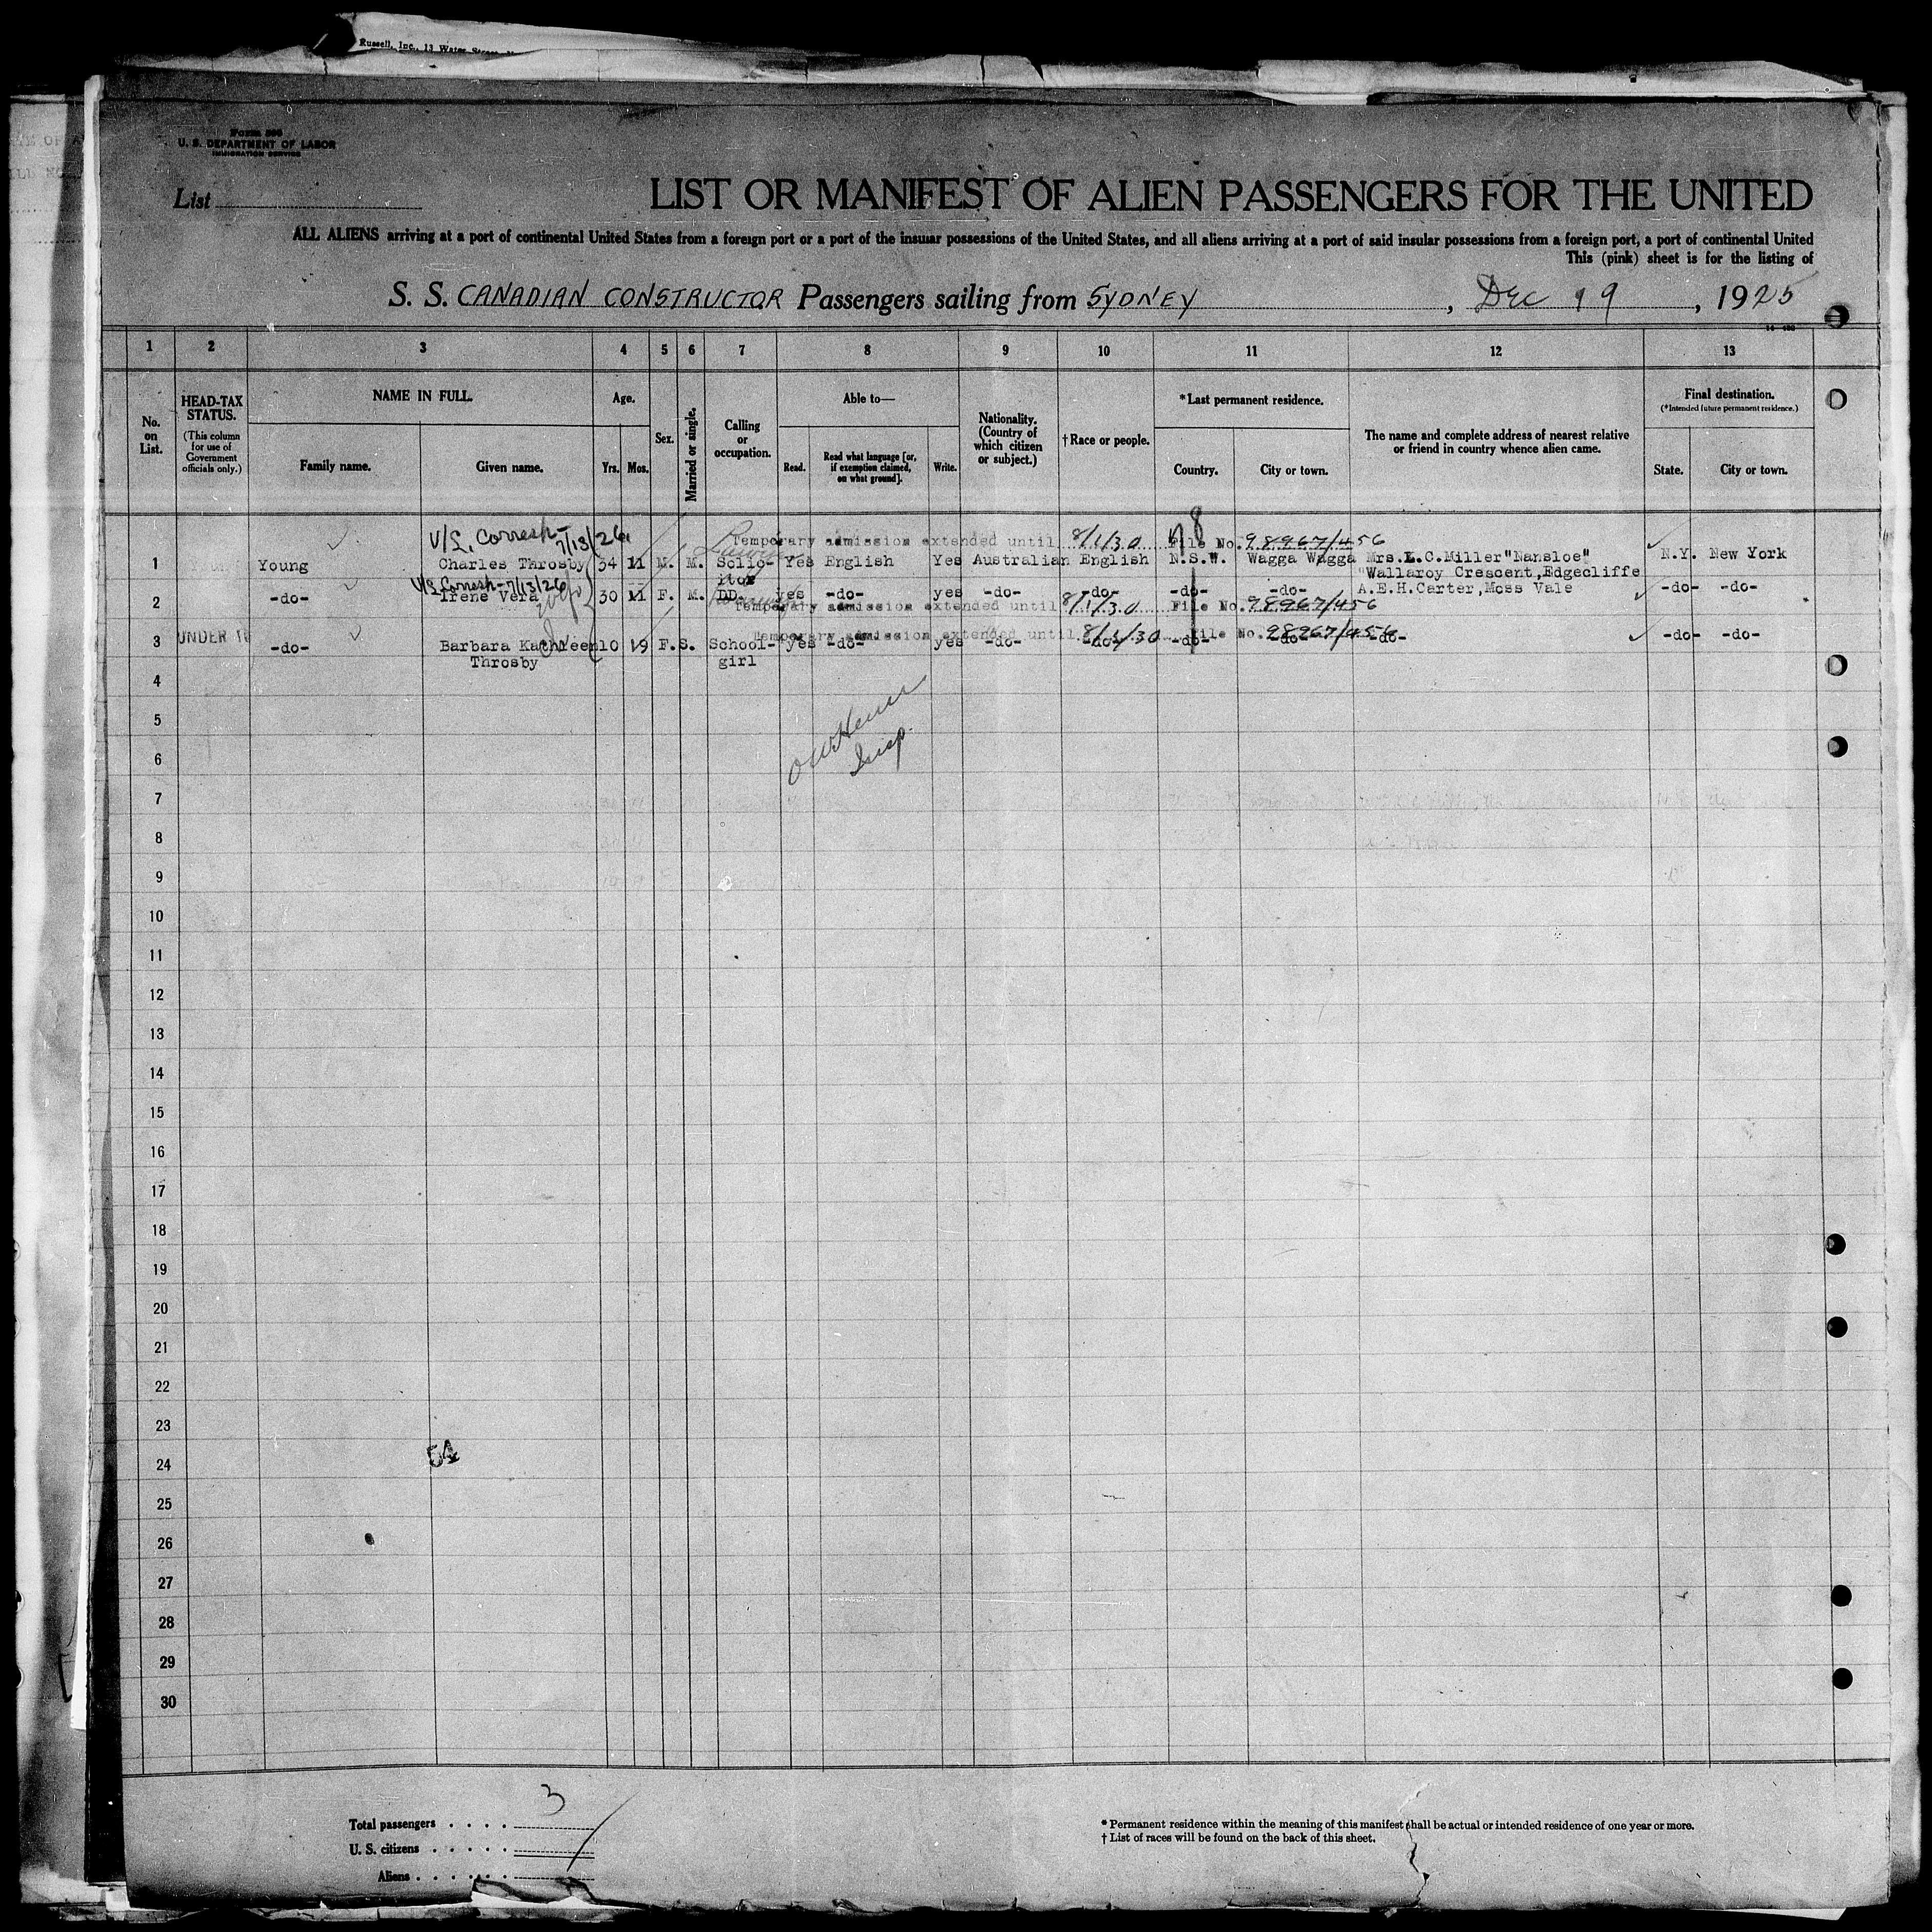 Russell, Inc., 13 Water Street,
U. S. DEPARTMENT OF LABOR
IMMIGRATION SERVICE
List
LIST OR MANIFEST OF ALIEN PASSENGERS FOR THE UNITED
ALL ALIENS arriving at a port of continental United States from a foreign port or a port of the insular possessions of the United States, and all aliens arriving at a port of said insular possessions from a foreign port, a port of continental United
This (pink) sheet is for the listing of
S. S. CANADIAN CONSTRUCTOR Passengers sailing from SYDNEY, Dec 19, 1925
1 2 3 4 5 6 7 8 9 10 11 12 13
No. on List.
HEAD-TAX STATUS.
(This column for use of Government officials only.)
NAME IN FULL.
Family name. Given name.
Age.
Yrs. Mos.
Sex.
Married or single.
Calling or occupation.
Able to—
Read. Read what language [or, if exemption claimed, on what ground]. Write.
Nationality. (Country of which citizen or subject.)
†Race or people.
*Last permanent residence.
Country. City or town.
The name and complete address of nearest relative or friend in country whence alien came.
Final destination.
(*Intended future permanent residence.)
State. City or town.
V/L. Corresh- 7/13/26 Temporary admission extended until 8/1/30 File No. 98967/456
1 Young Charles Throsby 34 11 M. M. Solic- Yes English Yes Australian English N.S.W. Wagga Wagga Mrs.L.C.Miller"Nansloe" N.Y. New York
itor "Wallaroy Crescent,Edgecliffe
V/L Corresh- 7/13/26
2 -do- Irene Vera 30 11 F. M. DD. yes -do- yes -do- -do- -do- -do- A.E.H.Carter,Moss Vale -do- -do-
Temporary admission extended until 8/1/30 File No. 98967/456
UNDER 16 Temporary admission extended until 8/1/30 File No. 98967/456
3 -do- Barbara Kathleen 10 9 F. S. School- yes -do- yes -do- -do- -do- -do- -do- -do- -do-
Throsby girl
4
5
6
Insp.
7
8
9
10
11
12
13
14
15
16
17
18
19
20
21
22
23
24
54
25
26
27
28
29
30
Total passengers . . . . 3
U. S. citizens . . . . .
Aliens . . . . . .
* Permanent residence within the meaning of this manifest shall be actual or intended residence of one year or more.
† List of races will be found on the back of this sheet.